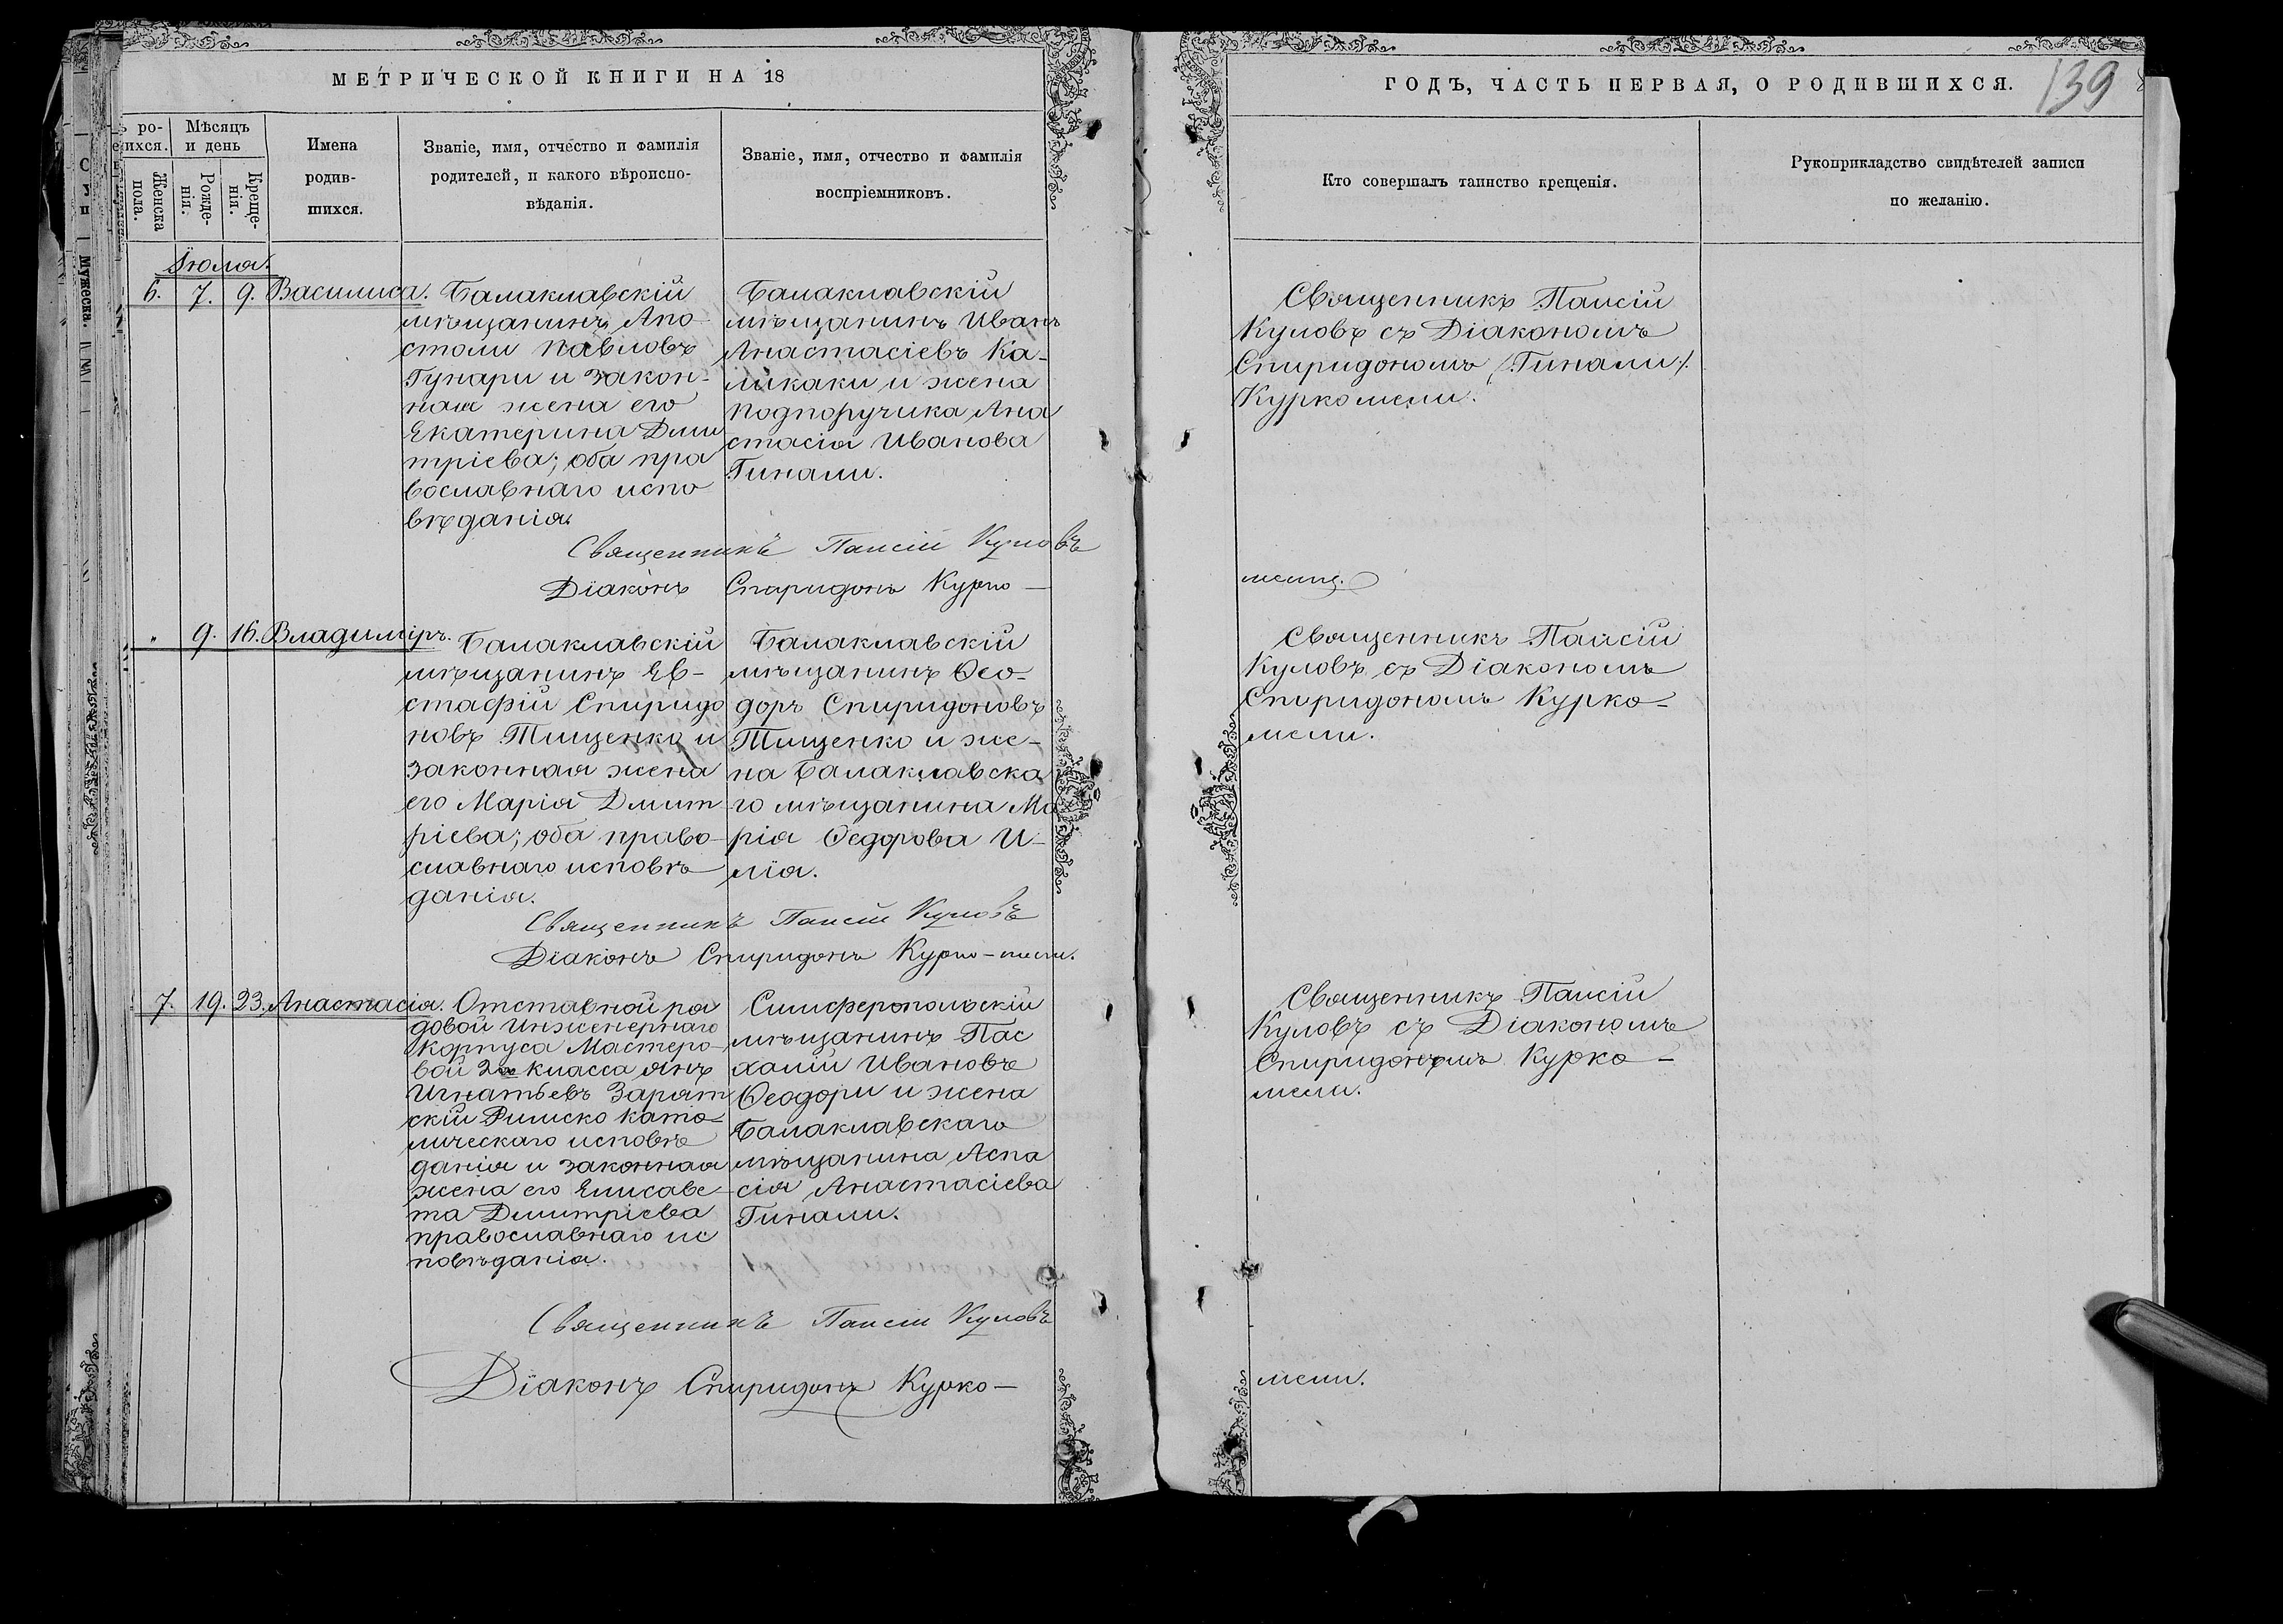 МЕТРИЧЕСКОЙ КНИГИ НА 18
ГОДЪ, ЧАСТЬ ПЕРВАЯ, О РОДИВШИХСЯ.
139
ро-
ихся.
Женска
пола.
Мѣсяцъ
и день
Рожде-
нія.
Креще-
нія.
Имена
родив-
шихся.
Званіе, имя, отчество и фамилія
родителей, и какого вѣроиспо-
вѣданія.
Званіе, имя, отчество и фамилія
воспріемниковъ.
Кто совершалъ таинство крещенія.
Рукоприкладство свидѣтелей записи
по желанію.
Мужеска.
Іюля.
6. 7. 9. Василиса.
Балаклавскій
мѣщанинъ Апо
столи Павловъ
Гунари и закон-
ная жена его
Екатерина Дми
тріева; оба пра
вославнаго испо
вѣданія.
Балаклавскій
мѣщанинъ Иванъ
Анастасіевъ Ка-
ликаки и жена
подпоручика Ана
стасія Иванова
Гинали.
Священникъ Паисій
Куловъ съ Діакономъ
Спиридономъ (Гинали).
Куркомели.
Священникъ Паисій Куловъ
Діаконъ Спиридонъ Курко-
мели.
" 9. 16. Владиміръ.
Балаклавскій
мѣщанинъ Ев-
стафій Спиридо
новъ Тищенко и
законная жена
его Марія Димит
ріева; оба право-
славнаго исповѣ
данія.
Балаклавскій
мѣщанинъ Ѳео-
доръ Спиридоновъ
Тищенко и же-
на Балаклавска
го мѣщанина Ма
рія Ѳедорова И-
лія.
Священникъ Паисій
Куловъ съ Діакономъ
Спиридономъ Курко-
мели.
Священникъ Паисій Куловъ
Діаконъ Спиридонъ Курко-мели.
7. 19. 23. Анастасія.
Отставной ря
довой Инженернаго
Корпуса Мастеро-
вой 2го класса Янъ
Игнатьевъ Зарят
скій Римско като-
лическаго исповѣ
данія и законная
жена его Елисаве-
та Димитріева
православнаго ис
повѣданія.
Симферопольскій
мѣщанинъ Пас
халій Ивановъ
Ѳеодори и жена
Балаклавскаго
мѣщанина Аспа
сія Анастасіева
Гинали.
Священникъ Паисій
Куловъ съ Діакономъ
Спиридономъ Курко-
мели.
Священникъ Паисій Куловъ
Діаконъ Спиридонъ Курко-
мели.